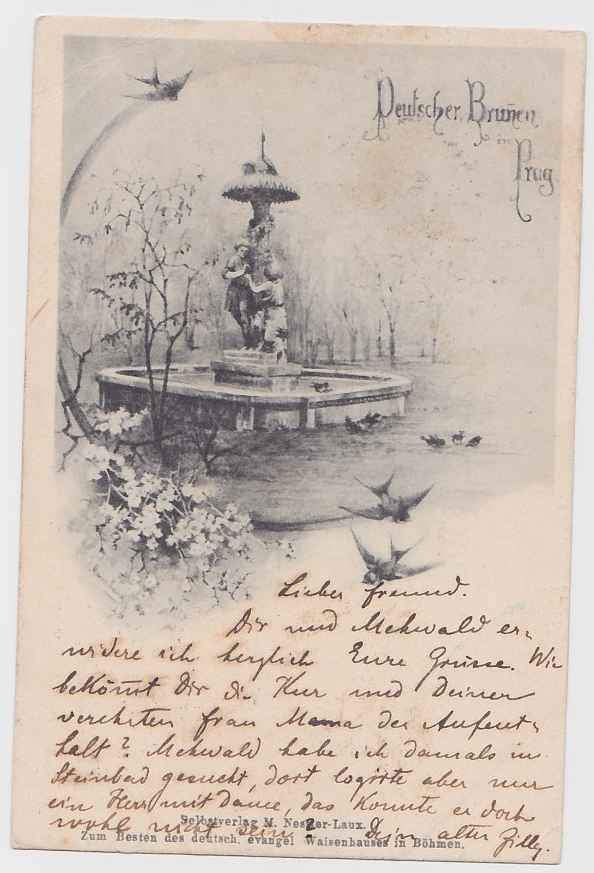 Deutscher Brun̄en
in
Prag
Lieber Freund.
Dir und Mehwald er-
widere ich herzlich Eure Grüsse. Wie
bekom̄t Dir die Kur und Deiner
verehrten Frau Mama der Aufent-
halt? Mehwald habe ich damals im
Steinbad gesucht, dort logirte aber nur
ein Herr mit Dame, das konnte er doch
wohl nicht sein? Dein alter Zilly.
Selbstverlag M. Nes-Laux.
Zum Besten des deutsch. evangel Waisenhauses in Böhmen.